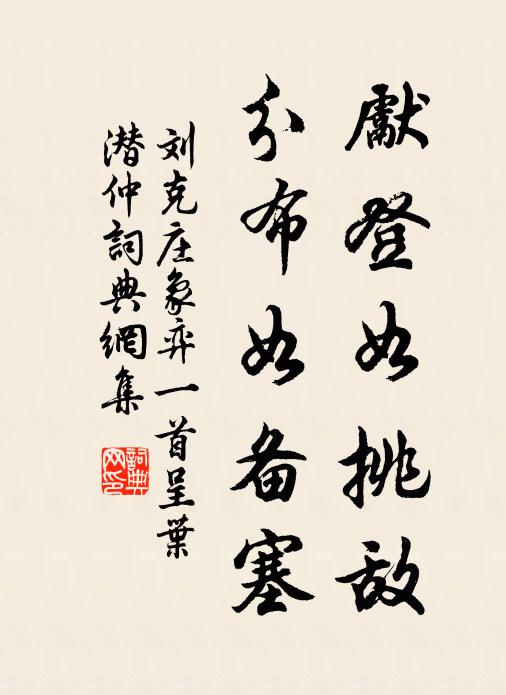 獻登如挑敌
分布如备塞
刘克庄象弈一首呈葉
潜仲詞典網集
詞典
网印